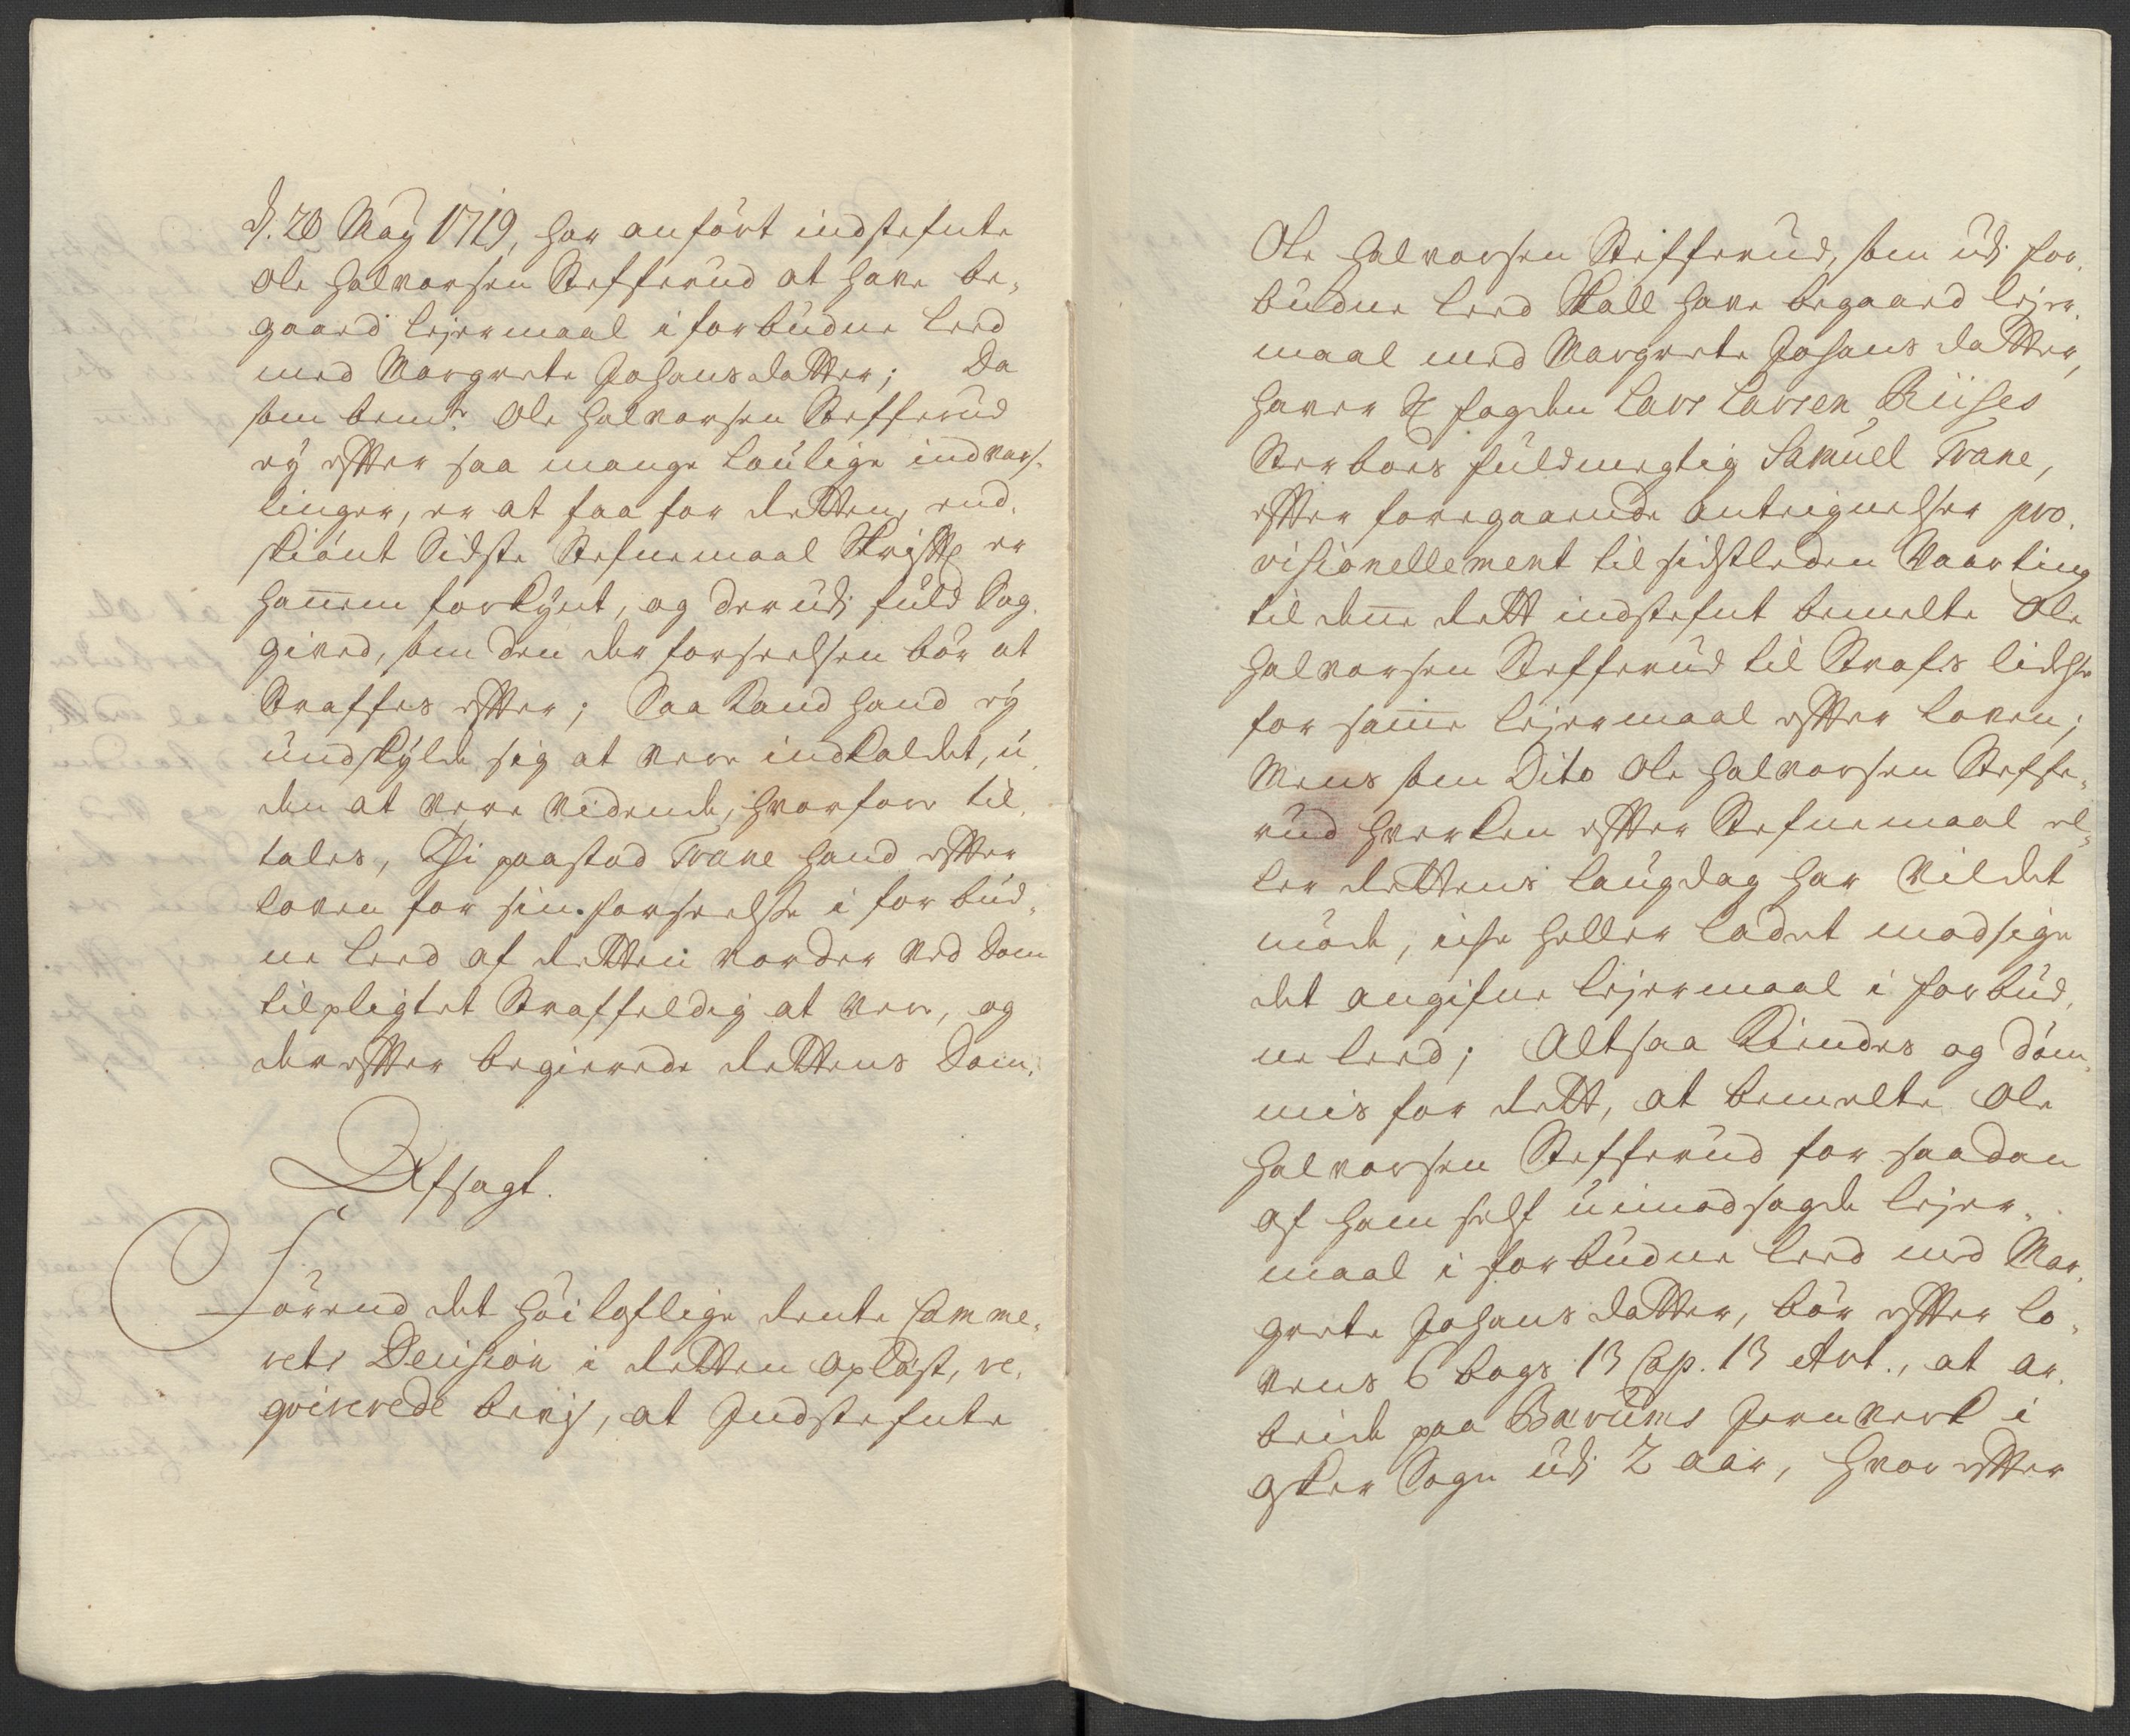 d. 20 Maÿ 1719, har anført indstefnte
Ole Halvorsen Stefferud at have be-
gaard lejermaal i forbudne Leed
med Margrete Johansdatter; Da
som bemte Ole Halvorsen Stefferud
eÿ efter saa mange lovlige indkars-
linger, er at faa for Retten, end-
skiønt Sidste Stefnemaal Skriftl er
hannem forkÿnt, og derudj fuld Sag-
gived, som den der forseelsen bør at
Straffes efter; Saa kand hand eÿ
undskÿlde sig at vere indkaldet, u-
den at vere vidende, hvorfore til-
tales, Thi paastod Trane hand efter
loven for sin forseelse i forbud-
ne Leed af Retten vorder ved Dom
tilpligtet Straffeldig at vere, og
derefter begierede Rettens Dom.
Afsagt.
Førend det høiloflige Rente Camme-
rets Decision i Retten oplæst, re-
qvirerede bevis, at Indstefnte
Ole Halvorsen Stefferud, som udj for-
budne Leed Skall have begaard lejer-
maal med Margrete Johans datter,
haver Sl fogden Lars Larsen Riises
Sterboes fuldmegtig Samuel Trane,
efter foregaaende antegnelser pro-
visionellement til sidstleden Vaarting
til denne Rett indstefnt bemelte Ole
Halvorsen Stefferud til Strafs lidelse
for samme lejermaal efter loven;
Mens som Dito Ole Halvorsen Steffe-
rud hverken efter Stefnemaal el-
ler Rettens laugdag har vildet
møde, icke heller ladet modsige
det angifne lejermaal i forbud-
ne leed; Altsaa kiendes og døm-
mis for Rett, at bemelte Ole
Halvorsen Stefferud for saadan
af ham self uimodsagde lejer-
maal i forbudne leed med Mar-
grete Johans datter, bør efter lo-
vens 6 bogs 13 Cap. 13 Art., at ar-
beide paa Bærums Jernverk i
Asker Sogn udj 2 aar, hvorefter